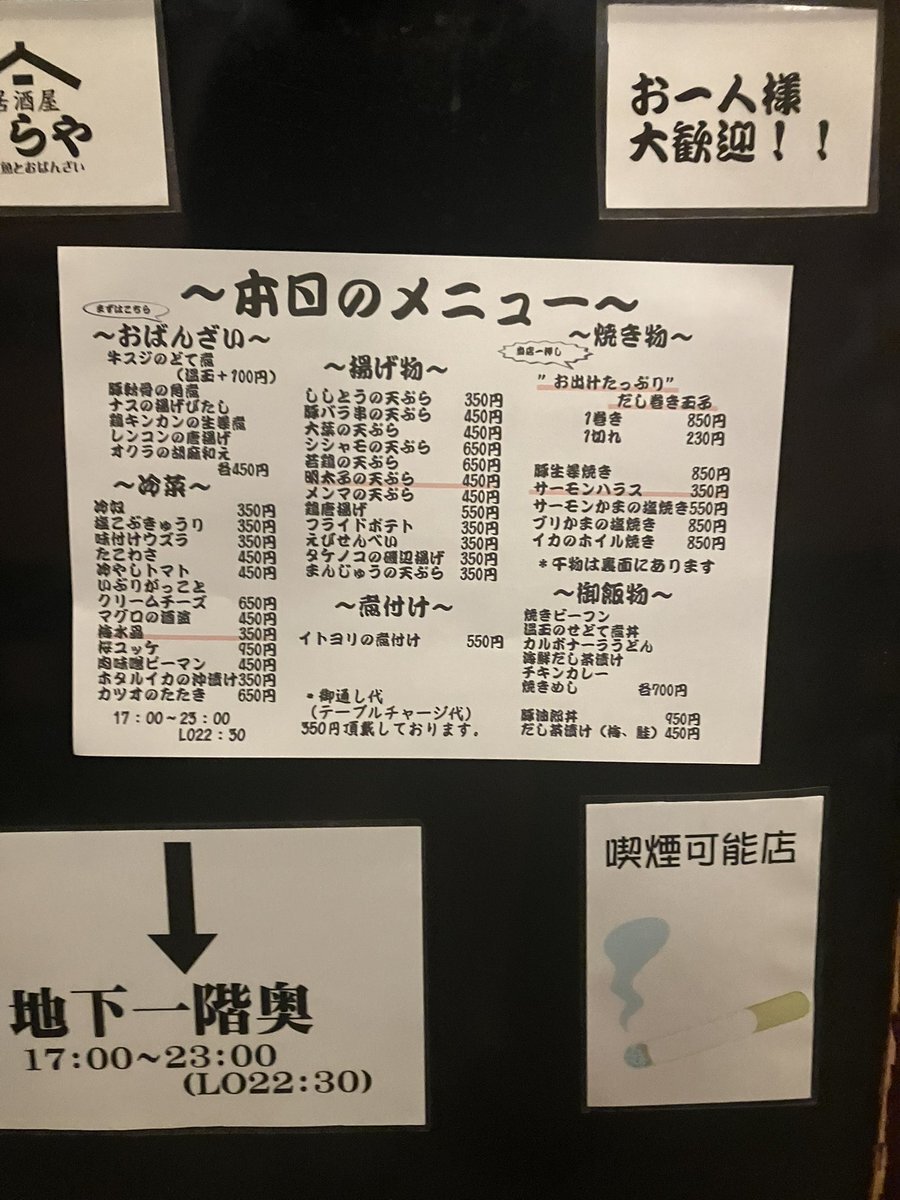 居酒屋
らや
魚とおばんざい
お一人様
大歓迎！！
～本日のメニュー～
まずはこちら
～おばんざい～
牛スジのどて煮
（温玉＋100円）
豚軟骨の角煮
ナスの揚げびたし
鶏キンカンの生姜煮
レンコンの唐揚げ
オクラの胡麻和え
各450円
～冷菜～
冷奴 350円
塩こぶきゅうり 350円
味付けウズラ 350円
たこわさ 450円
冷やしトマト 450円
いぶりがっこと
クリームチーズ 650円
マグロの酒盗 450円
梅水晶 350円
桜ユッケ 950円
肉味噌ピーマン 450円
ホタルイカの沖漬け350円
カツオのたたき 650円
17：00～23：00
LO22：30
～揚げ物～
ししとうの天ぷら 350円
豚バラ串の天ぷら 450円
大葉の天ぷら 450円
シシャモの天ぷら 650円
若鶏の天ぷら 650円
明太子の天ぷら 450円
メンマの天ぷら 450円
鶏唐揚げ 550円
フライドポテト 350円
えびせんべい 350円
タケノコの磯辺揚げ 350円
まんじゅうの天ぷら 350円
～煮付け～
イトヨリの煮付け 550円
・御通し代
（テーブルチャージ代）
350円頂戴しております。
～焼き物～
当店一押し
”お出汁たっぷり”
だし巻き玉子
1巻き 850円
1切れ 230円
豚生姜焼き 850円
サーモンハラス 350円
サーモンかまの塩焼き550円
ブリかまの塩焼き 850円
イカのホイル焼き 850円
＊干物は裏面にあります
～御飯物～
焼きビーフン
温玉のせどて煮丼
カルボナーラうどん
海鮮だし茶漬け
チキンカレー
焼きめし 各700円
豚油脂丼 950円
だし茶漬け（梅、鮭）450円
地下一階奥
17:00～23:00
(LO22:30)
喫煙可能店